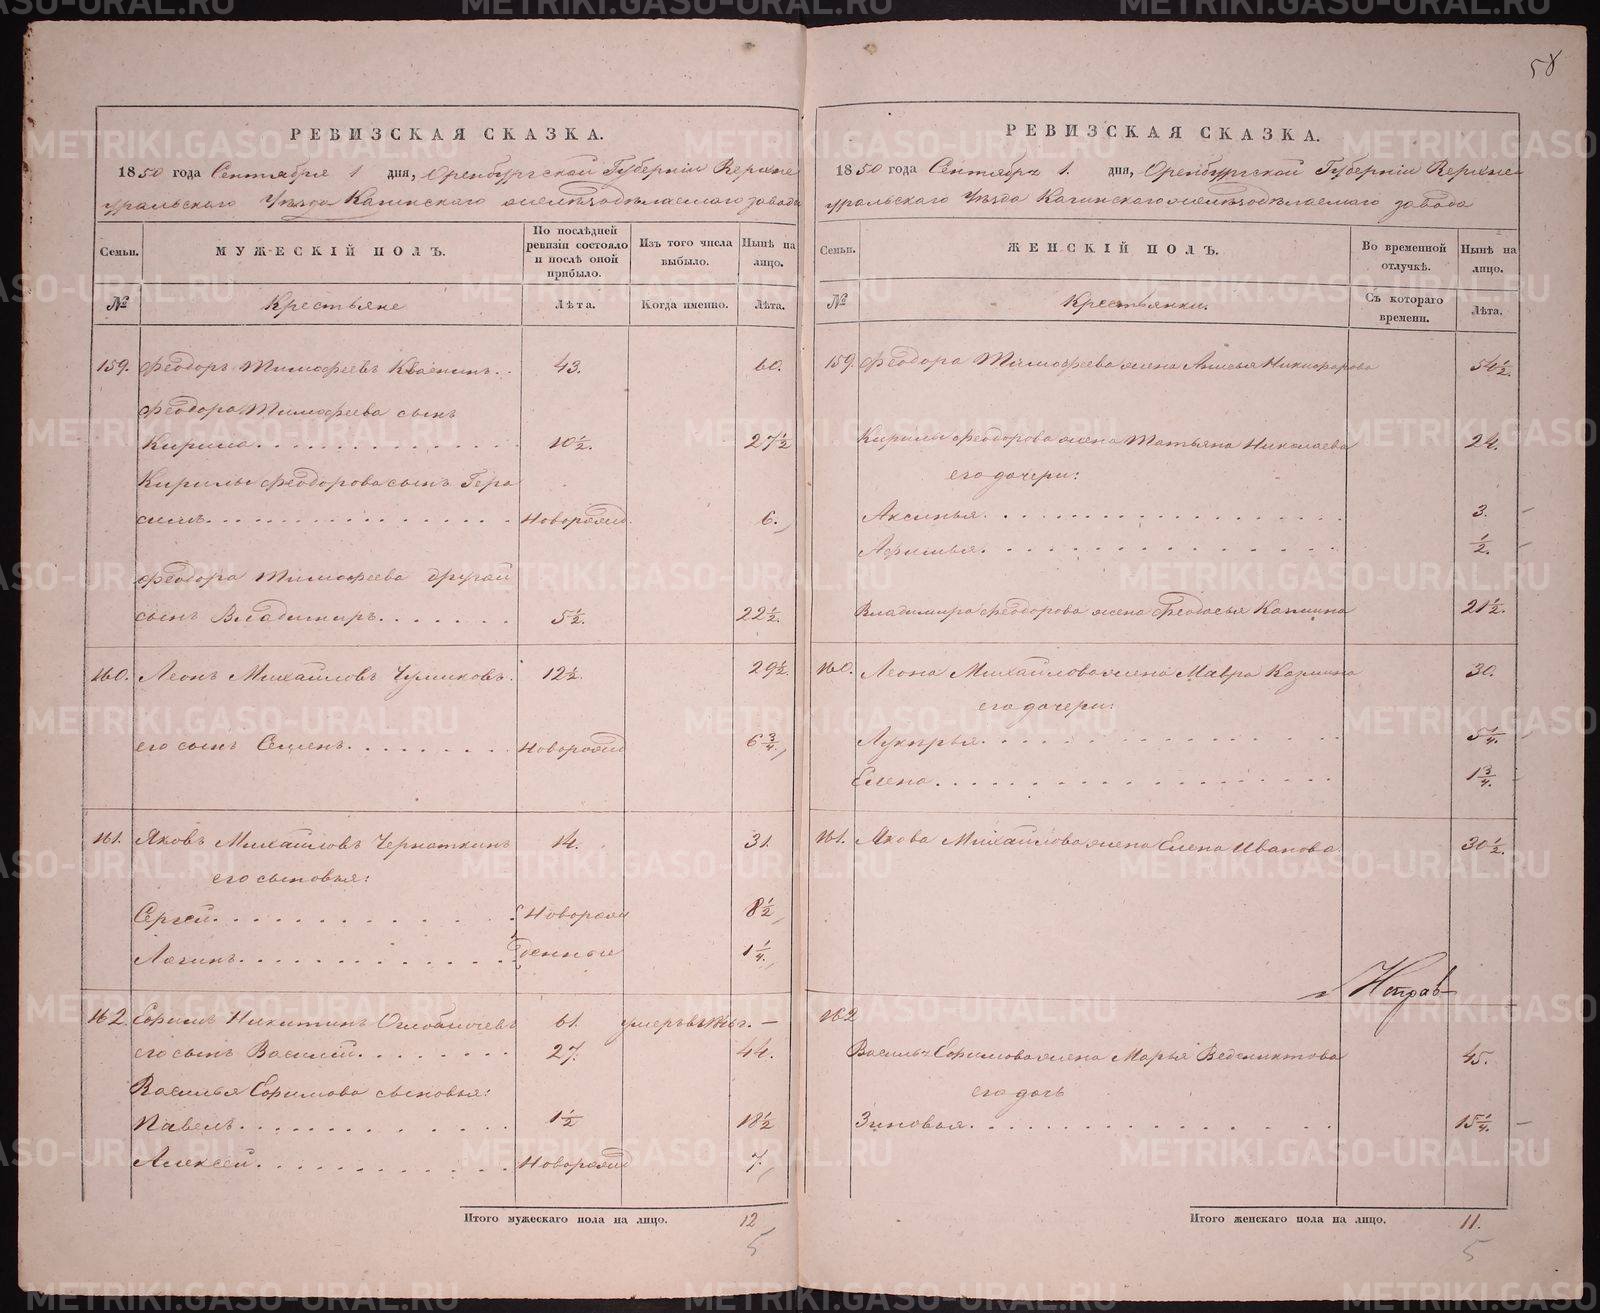 58
РЕВИЗСКАЯ СКАЗКА.
1850 года Сентября 1 дня, Оренбургской Губерніи Верхне
уральскаго Уѣзда Кагинскаго желѣзодѣлаемаго завода
Семьи. МУЖЕСКІЙ ПОЛЪ. По послѣдней ревизіи состояло и послѣ оной прибыло. Изъ того числа выбыло. Нынѣ на лицо.
№ Крестьяне Лѣта. Когда именно. Лѣта.
159. Феодоръ Тимофеевъ Квасник. 43. 60.
Феодора Тимофеева сынъ
Кирила 10½. 27½
Кирилы Феодорова сынъ Гера
симъ Новорожд. 6.
Феодора Тимофеева другой
сынъ Владимиръ 5½. 22½.
160. Леонъ Михайловъ Чуликовъ. 12½. 29½.
его сынъ Семенъ Новорожд 6¾.
161. Яковъ Михайловъ Черноткинъ 14. 31.
его сыновья:
Сергей새оворож 8½
Логинъ денные 1¼.
162. Ефимъ Никитинъ 61. умеръ въ —
его сынъ Василій 27. 44.
Василья Ефимова сыновья:
Павелъ 1½ 18½
Алексей Новорожд 7.
Итого мужескаго пола на лицо. 12
5
РЕВИЗСКАЯ СКАЗКА.
1850 года Сентября 1. дня, Оренбургской Губерніи Верхне
уральскаго Уѣзда Кагинскаго желѣзодѣлаемаго завода
Семьи. ЖЕНСКІЙ ПОЛЪ. Во временной отлучкѣ. Нынѣ на лицо.
№ Крестьянки. Съ котораго времени. Лѣта.
159. Феодора Тимофеева жена Анисья Никифорова 54½.
Кирилы Феодорова жена Татьяна Николаева 24.
его дочери:
Аксинья 3.
Афимья ½.
Владимира Феодорова жена Феодосья Капиина 21½.
160. Леона Михайлова жена Мавра Козмина 30.
его дочери:
Лукерья 5¼.
Елена 1¾.
161. Якова Михайлова жена Елена Иванова. 30½.
Исправ
162
Василья Ефимова жена Марья Ведениктова 45.
его дочь
Зиновья 15¼.
Итого женскаго пола на лицо. 11.
5
METRIKI.GASO-URAL.RU